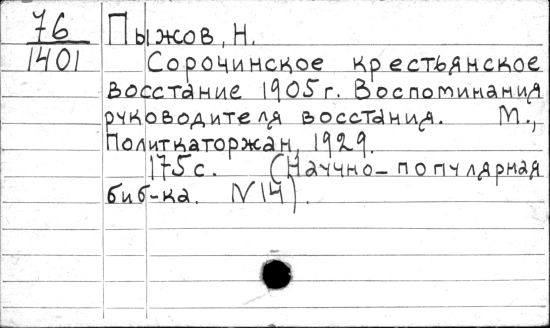 76
1401
Пыжов, Н.
Сорочинское крестьянское
восстание 1905 г. Воспоминания
руководителя восстания. М.,
Политкаторжан, 1929.
175 с. (Научно-популярная
биб-ка. N 14).